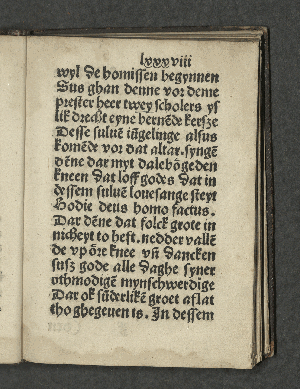 lxxxviii
wyl de homissen begynnen
Sus ghan denne vor deme
prester heer twey scholers ys
lik drecht eyne bernēde kersze
Desse suluē iūgelinge alsus
komēde vor dat altar. syngē
dēne dar myt dalebōgeden
kneen dat loff godes dat in
dessem suluē louesange steyt
Hodie deus homo factus.
Dar dēne dat folck grote in
nicheyt to heft. nedder vallē
de vp ōre knee vñ dancken
susz gode alle daghe syner
othmodigē mynschwerdige
Dar ok sūderlikē groet aflat
tho ghegeuen is. In dessem